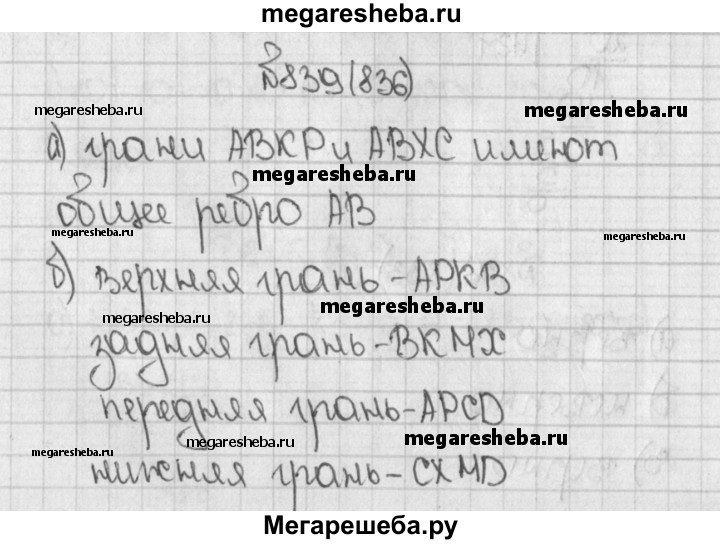 megaresheba.ru
№839(836)
megaresheba.ru
megaresheba.ru
а) грани АВКР и АВХС имеют
megaresheba.ru
общее ребро АВ
megaresheba.ru
megaresheba.ru
б) верхняя грань-АРКВ
megaresheba.ru
megaresheba.ru
задняя грань-ВКМХ
megaresheba.ru
передняя грань-АРСD
megaresheba.ru
megaresheba.ru
megaresheba.ru
нижняя грань-СХМD
megaresheba.ru
Мегарешеба.ру